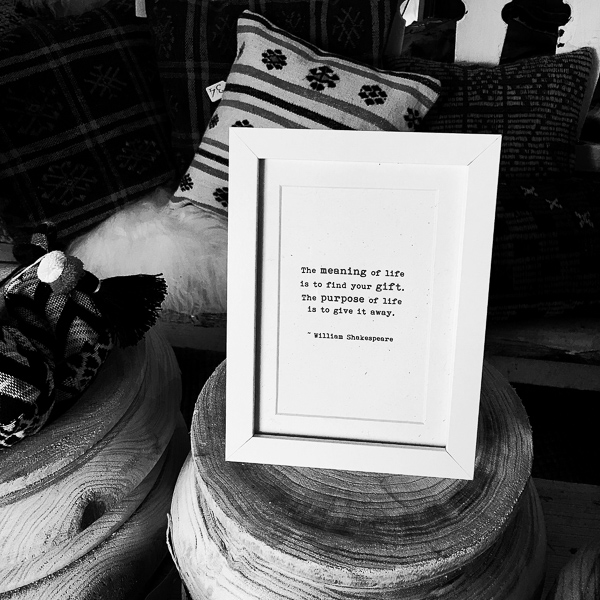 The meaning of life
is to find your gift.
The purpose of life
is to give it away.
~ William Shakespeare